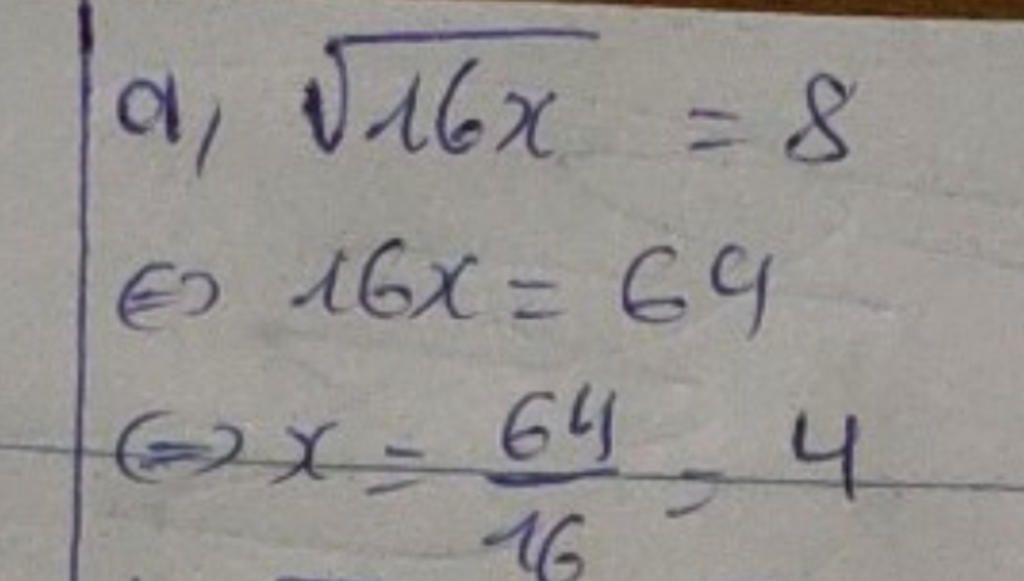 a, √16x = 8
⇔ 16x = 64
⇔ x = 64/16 = 4